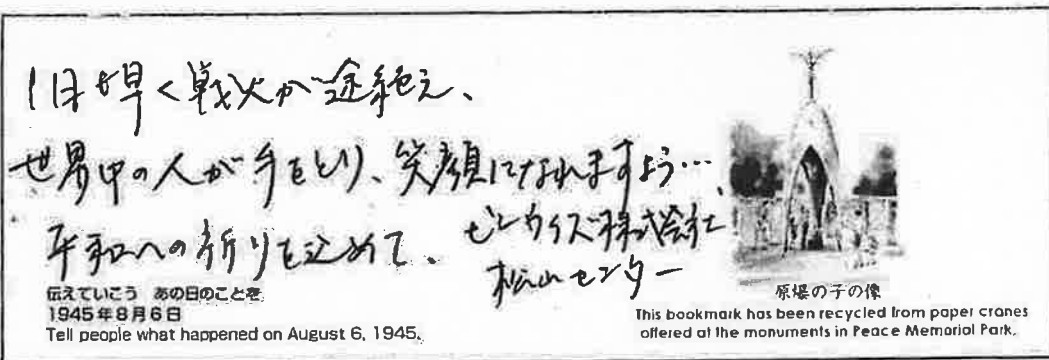 1日も早く戦火が途絶え、
世界中の人が手をとり、笑顔になれますよう…、
平和への祈りを込めて。
ゼンウイズ株式会社
松山センター
伝えていこう あの日のことを
1945年8月6日
Tell people what happened on August 6, 1945.
原爆の子の像
This bookmark has been recycled from paper cranes
offered at the monuments in Peace Memorial Park.